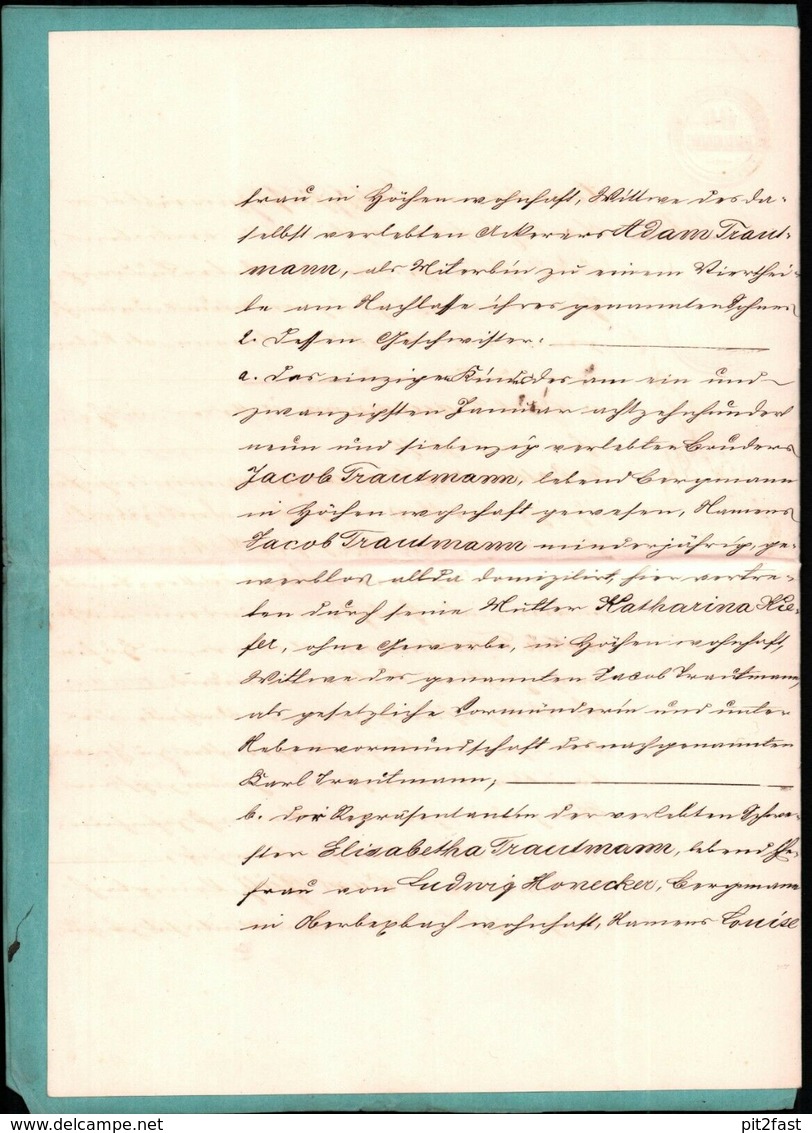 frau in Höchen wohnhaft, Wittwe des da-
selbst verlebten Ackerers Adam Traut-
mann, als Miterbin zu einem Vierthei-
le am Nachlasse ihres genannten Sohnes
2. dessen Geschwister:
a. das einzige Kind des am ein und
zwanzigsten Januar achtzehnhundert
neun und siebenzig verlebten Bruders
Jacob Trautmann, lebend Bergmann
in Höchen wohnhaft gewesen, Namens
Jacob Trautmann minderjährig, ge-
werblos allda domizilirt, hier vertre-
ten durch seine Mutter Katharina Kie-
fer, ohne Gewerbe, in Höchen wohnhaft,
Wittwe des genannten Jacob Trautmann,
als gesetzliche Vormünderin und unter
Nebenvormundschaft des nachgenannten
Karl Trautmann;
b. die Repräsentantin der verlebten Schwe-
ster Elisabetha Trautmann, lebend Ehe-
frau von Ludwig Honecker, Bergmann
in Oberbexbach wohnhaft, Namens Louise
pit2fast